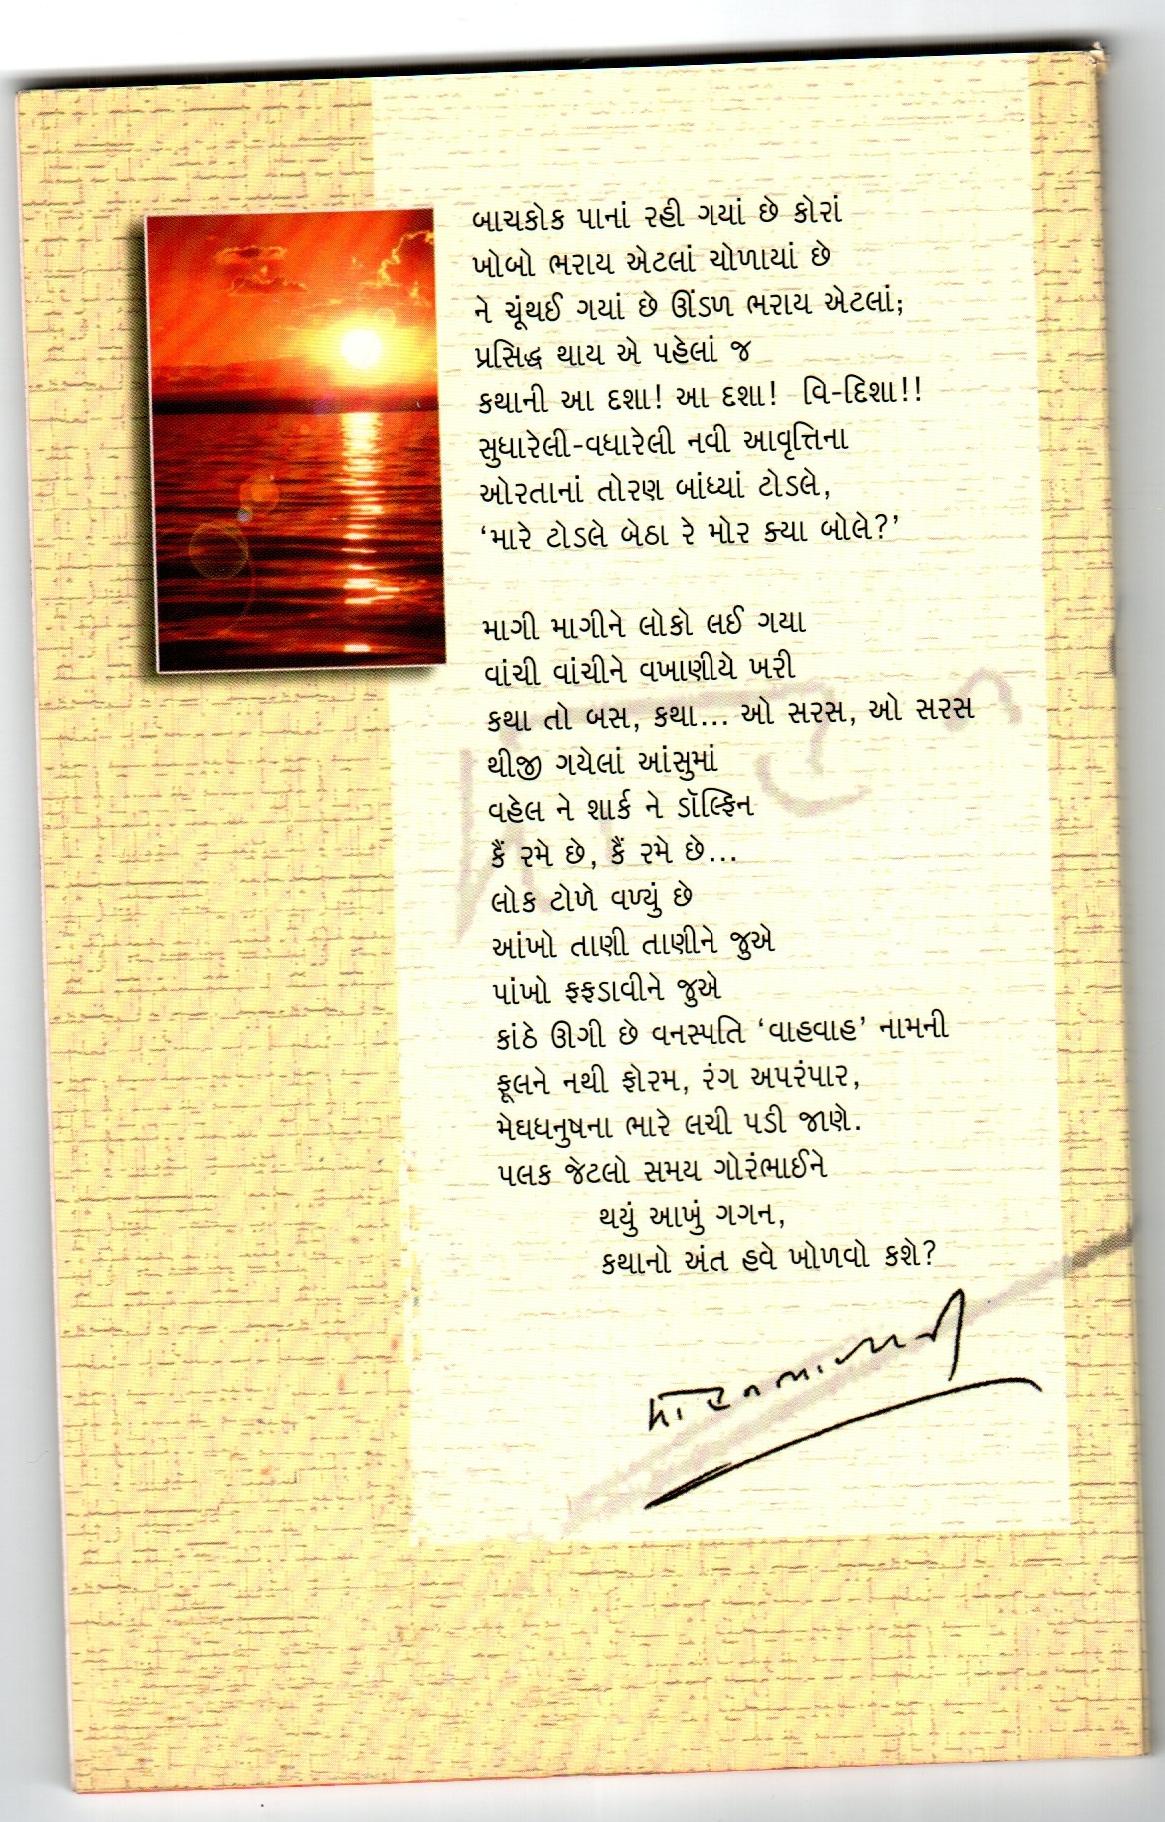 બાચકોક પાનાં રહી ગયાં છે કોરાં
ખોબો ભરાય એટલાં ચોળાયાં છે
ને ચૂંથઈ ગયાં છે ઊંડળ ભરાય એટલાં;
પ્રસિદ્ધ થાય એ પહેલાં જ
કથાની આ દશા! આ દશા! વિ-દિશા!!
સુધારેલી-વધારેલી નવી આવૃત્તિના
ઓરતાનાં તોરણ બાંધ્યાં ટોડલે,
‘મારે ટોડલે બેઠા રે મોર ક્યા બોલે?’
માગી માગીને લોકો લઈ ગયા
વાંચી વાંચીને વખાણીયે ખરી
કથા તો બસ, કથા... ઓ સરસ, ઓ સરસ
થીજી ગયેલાં આંસુમાં
વહેલ ને શાર્ક ને ડૉલ્ફિન
કૈં રમે છે, કૈં રમે છે...
લોક ટોળે વળ્યું છે
આંખો તાણી તાણીને જુએ
પાંખો ફફડાવીને જુએ
કાંઠે ઊગી છે વનસ્પતિ ‘વાહવાહ’ નામની
ફૂલને નથી ફોરમ, રંગ અપરંપાર,
મેઘધનુષના ભારે લચી પડી જાણે.
પલક જેટલો સમય ગોરંભાઈને
થયું આખું ગગન,
કથાનો અંત હવે ખોળવો કશે?